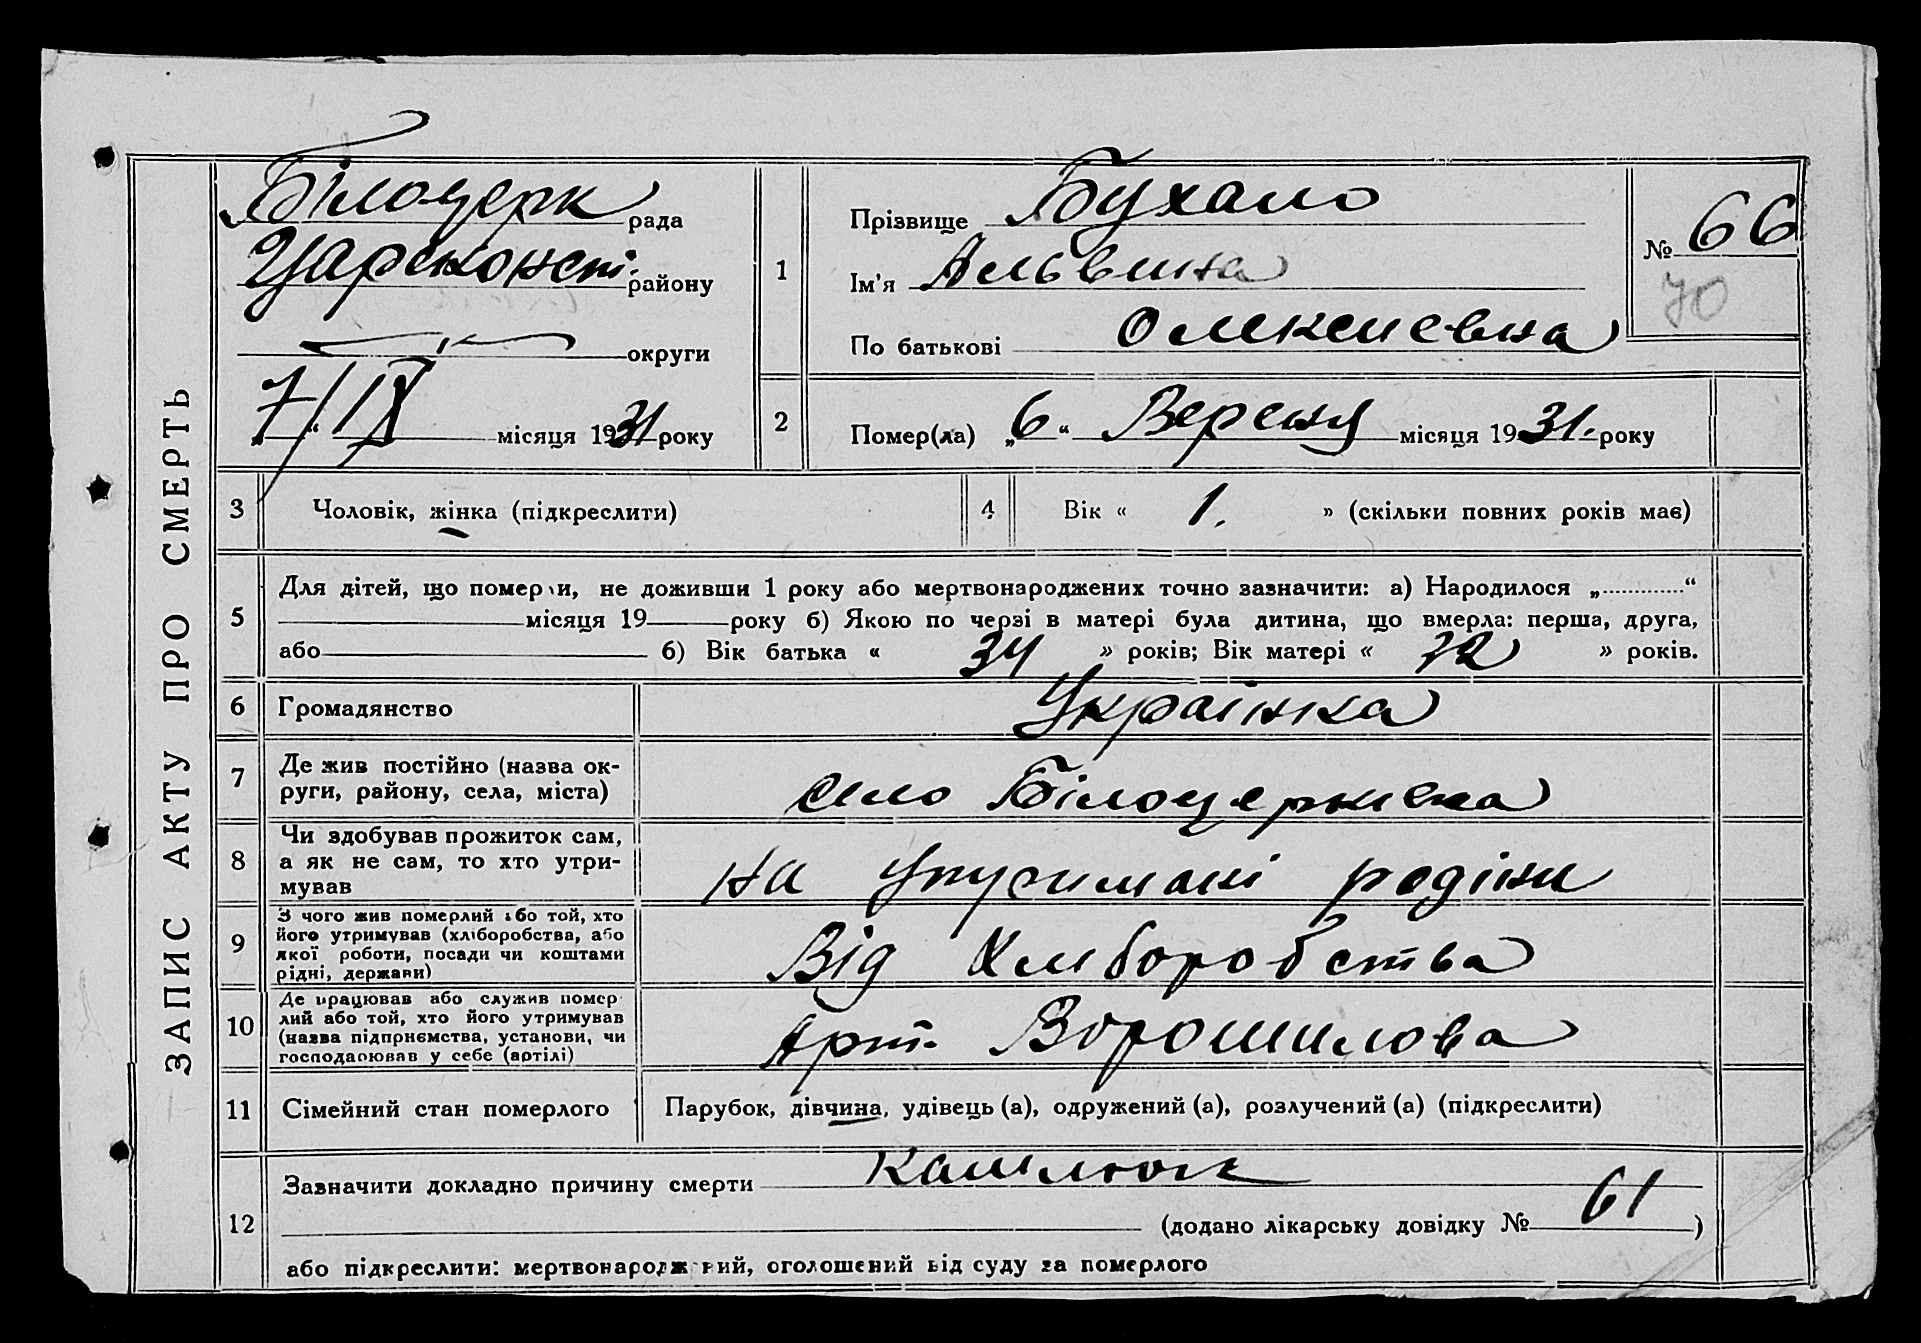 ЗАПИС АКТУ ПРО СМЕРТЬ
Білоцерк рада
Царекокст. району
округи
7/IX місяця 1931 року
1
Прізвище Бухало
Ім'я Альвина
По батькові Олексиевна
№ 66
70
2
Помер(ла) „6“ Вересня місяця 1931. року
3 Чоловік, жінка (підкреслити)
4 Вік « 1. » (скільки повних років має)
5 Для дітей, що померли, не доживши 1 року або мертвонароджених точно зазначити: а) Народилося „............“
місяця 19 року б) Якою по черзі в матері була дитина, що вмерла: перша, друга,
або б) Вік батька « 34 » років; Вік матері « 32 » років.
6 Громадянство Українка
7 Де жив постійно (назва ок-
руги, району, села, міста)
село Білоцеркивка
8 Чи здобував прожиток сам,
а як не сам, то хто утри-
мував
на утримані родини
9 З чого жив померлий або той, хто
його утримував (хліборобства, або
якої роботи, посади чи коштами
рідні, держави)
Від Хлиборобства
10 Де працював або служив помер
лий або той, хто його утримував
(назва підприємства, установи, чи
господарював у себе (артілі)
Арт. Ворошилова
11 Сімейний стан померлого Парубок, дівчина, удівець (а), одружений (а), розлучений (а) (підкреслити)
12 Зазначити докладно причину смерти Кашлюк
(додано лікарську довідку № 61)
або підкреслити: мертвонароджений, оголошений від суду за померлого